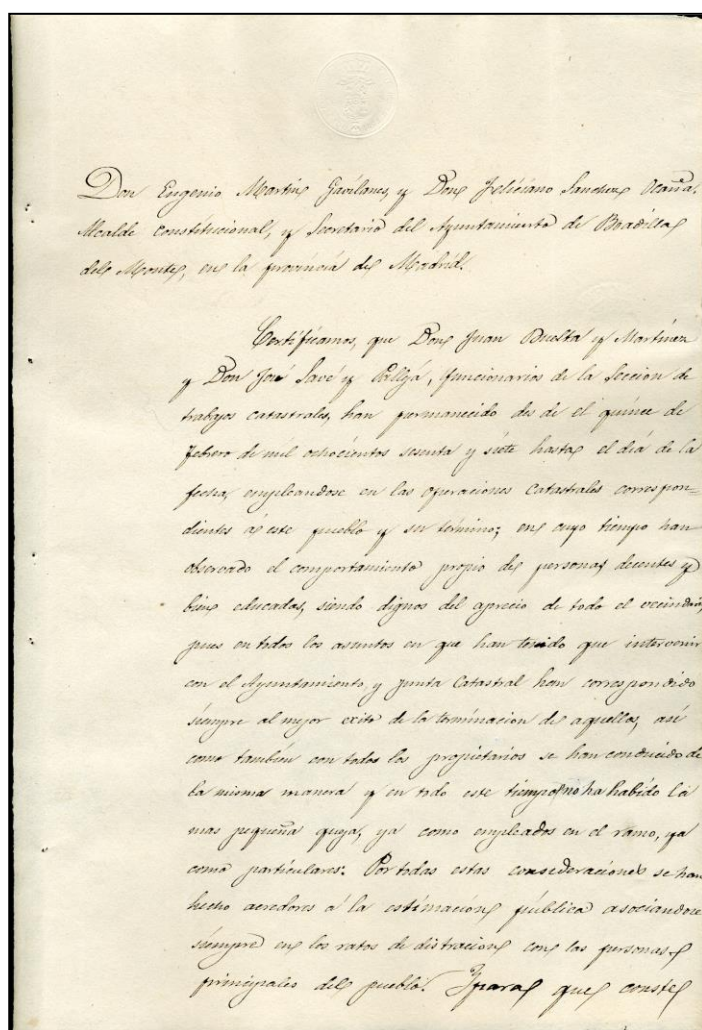 Don Eugenio Martin Gavilanes, y Don Feliciano Sanchez Ocaña,
Alcalde constitucional, y Secretario del Ayuntamiento de Boadilla
del Monte, en la provincia de Madrid.
Certificamos, que Don Juan Buelta y Martinez
y Don José Savé y, funcionarios de la Seccion de
trabajos catastrales, han permanecido des de el quince de
febrero de mil ochocientos sesenta y siete hasta el dia de la
fecha, empleandose en las operaciones Catastrales correspon=
dientes á este pueblo y su termino; en cuyo tiempo han
observado el comportamiento propio de personas decentes y
bien educadas, siendo dignos del aprecio de todo el vecindario,
pues en todos los asuntos en que han tenido que intervenir
con el Ayuntamiento, y Junta Catastral han correspondido
siempre al mejor exito de la terminacion de aquellos, asi
como tambien con todos los propietarios se han conducido de
la misma manera y en todo este tiempo no ha habido la
mas pequeña queja, ya como empleados en el ramo, ya
como particulares. Por todas estas consideraciones se han
hecho acredores á la estimacion pública asociandose
siempre en los ratos de distracion con las personas
principales del pueblo. Y para que conste